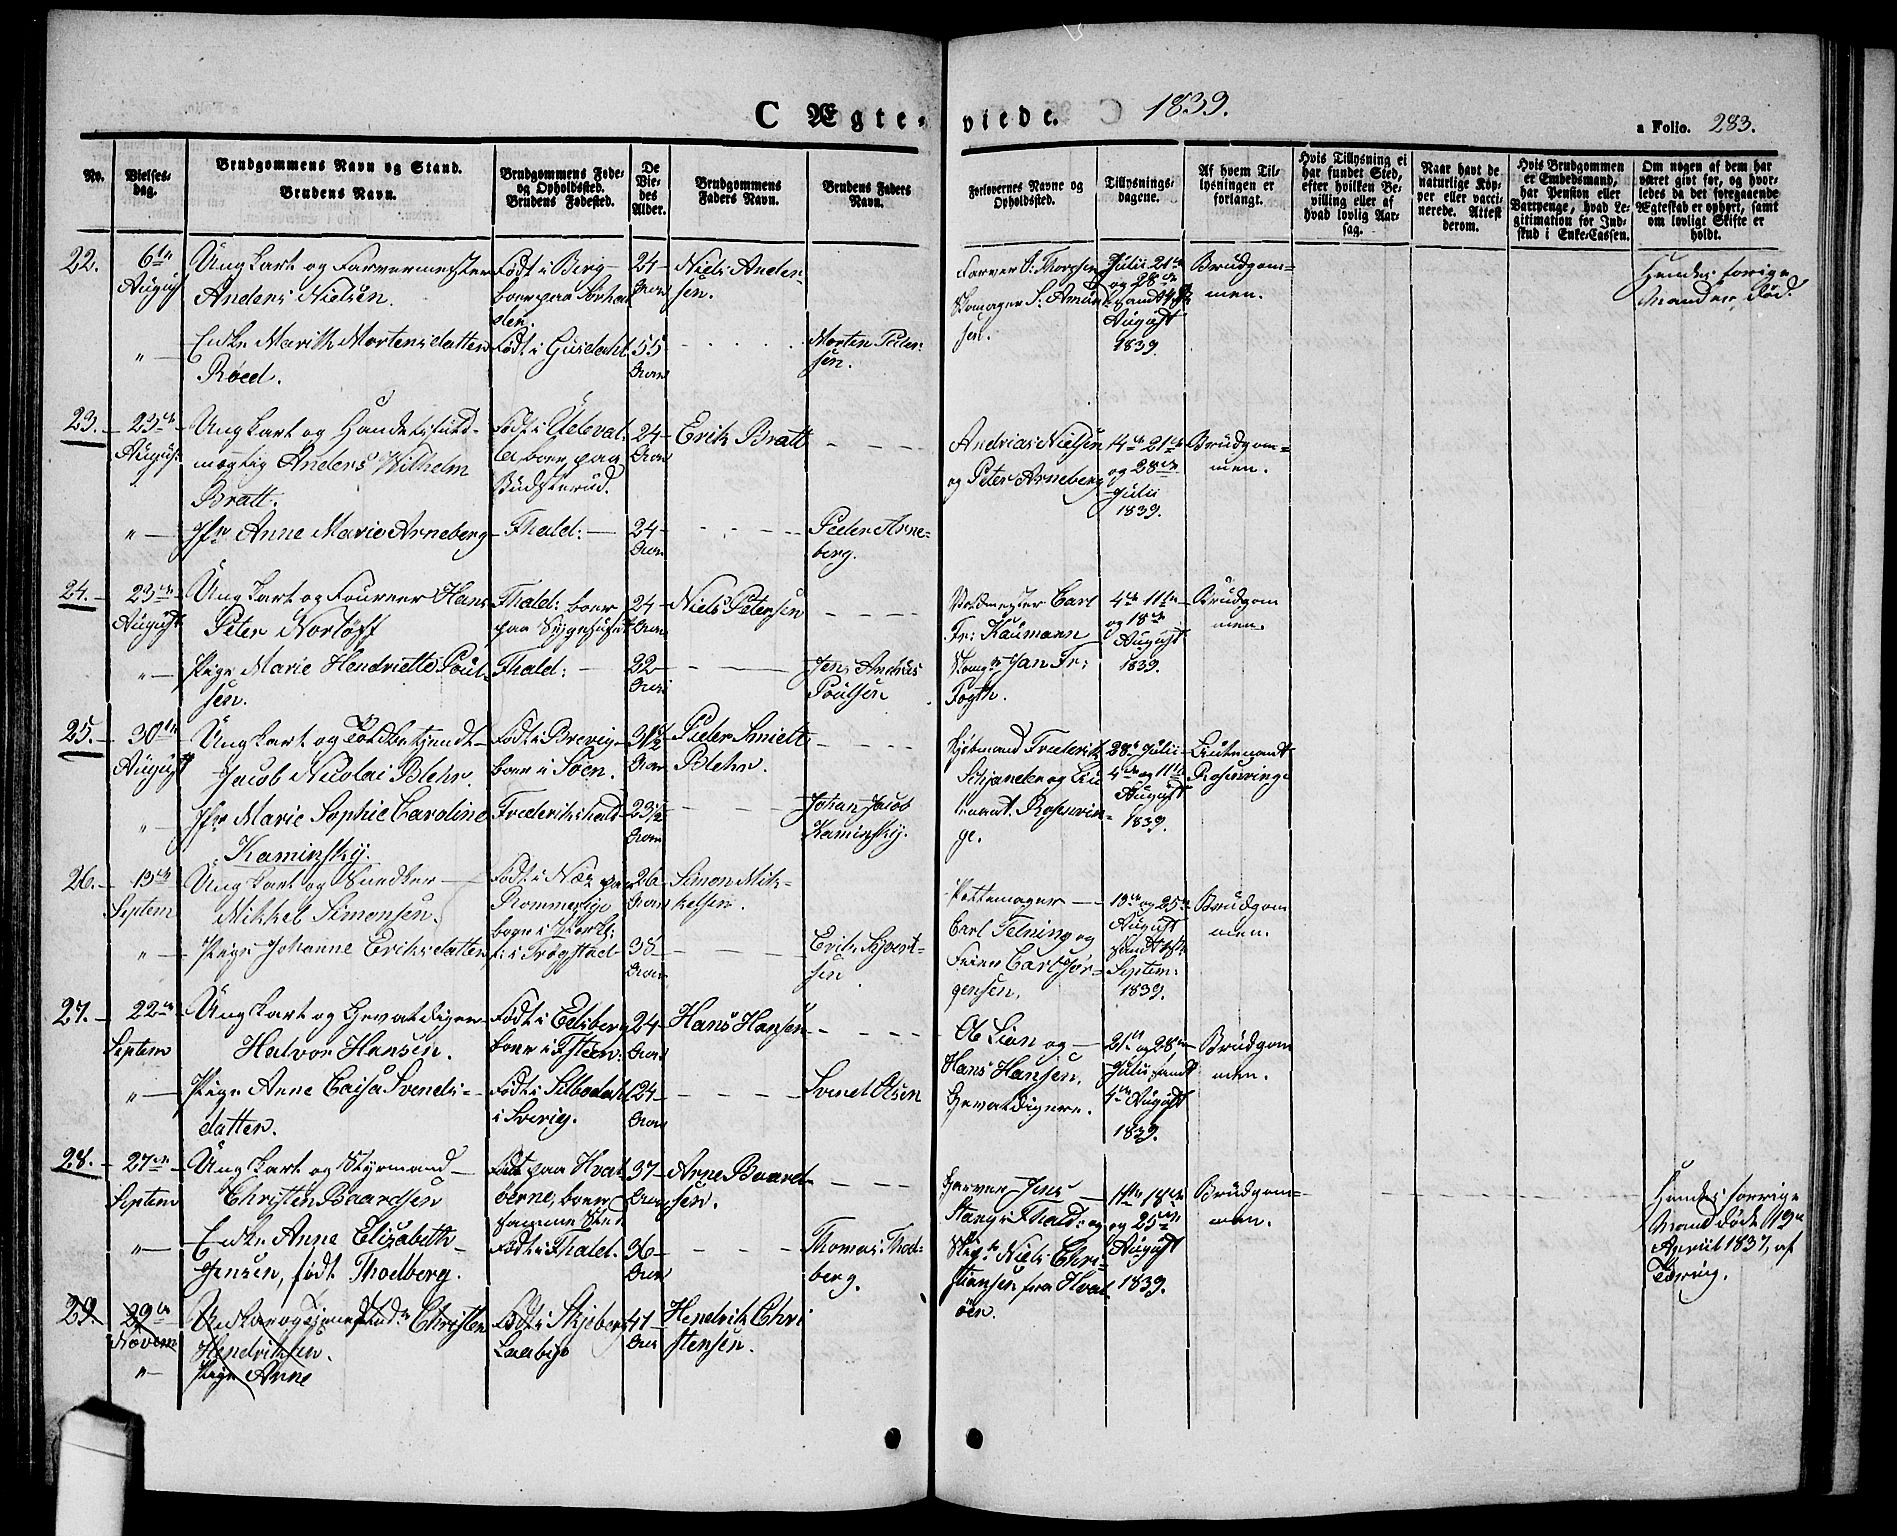 C Ægte-viede. 1839.
a Folio. 283.
No.
Vielses-
dag.
Brudgommens Navn og Stand.
Brudens Navn.
Brudgommens Føde-
og Opholdssted.
Brudens Fødested.
De
Vie-
des
Alder.
Brudgommens
Faders Navn.
Brudens Faders
Navn.
Forlovernes Navne og
Opholdssted.
Tillysnings-
dagene.
Af hvem Til-
lysningen er
forlangt.
Hvis Tillysning ei
har fundet Sted,
efter hvilken Be-
villing eller af
hvad lovlig Aar-
sag.
Naar havt de
naturlige Kop-
per eller vacci-
nerede. Attest
derom.
Hvis Brudgommen
er Embedsmand,
har Pension eller
Vartpenge, hvad Le-
gitimation for Ind-
skud i Enke-Cassen.
Om nogen af dem har
været givt før, og hvor-
ledes da det foregaaende
Ægteskab er ophørt, samt
om lovligt Skifte er
holdt.
22.
6te
August
Ungkarl og Farvermester
Anders Nielsen.
Født i Berg
boer paa
24
Aar
Niels Ander-
sen.
Farver
Skomager
sen.
Julii 21de
og 28de
samt 4de
August
1839.
Brudgom-
men.
Hendes forrige
Mand er død.
"
Enke Marith Mortensdatter
Røed.
Født i Gusdahl
55
Aar
Morten Peder-
sen.
23.
23de
August
Ungkarl og Handelsfuld-
mægtig Anders Wilhelm
Bratt.
Født i Udeval-
la, boer paa
Budsterud.
24
Aar
Erik Bratt
Andreas Nielsen
og Peter Arneberg
14de 21de
og 28de
Julii
1839.
Brudgom-
men.
"
Jfr Anne Marie Arneberg
Fhald:
24
Aar
Peder Arne-
berg.
24.
23de
August
Ungkarl og Foureer Hans
Peter Nortøff
Fhald: boer
paa Sygehuset
24
Aar
Niels Petersen
Carl
Fr: Kaumann
Jan Fr:
Fogth.
4de 11te
og 18de
August
1839.
Brudgom
men.
"
Pige Marie Hendriette Poul-
sen.
Fhald:
22
Aar
Jens Andreas
Poulsen
25.
30te
August
Ungkarl og Toldbetjendt
Jacob Nicolai Blehr.
Født i Brevig
boer i Soen.
31½
Aar
Peter Smidt
Blehr.
Kjøbmand Frederik
Stjander og Lieu
tenant Rosenvin-
ge.
28de Julii
4de og 11te
August
1839.
Lieutenandt
Rosenvinge
"
Jfr Marie Sophie Caroline
Kaminsky.
Frederikshald
23½
Aar
Johan Jacob
Kaminsky.
26.
13de
Septem
Ungkarl og Snedker
Mikkel Simonsen.
Født i Næs paa
Rommerige
26
Aar
Simon Mik-
kelsen.
Pottemager
Carl Telning og
Feier Carl Jør-
gensen.
18de og 25de
August
samt 1ste
Septem:
1839.
Brudgom
men.
"
Pige Johanne Eriksdatter
f: i Trøgstad
38
Aar
Erik Syvert-
sen
27.
22de
Septem
Ungkarl og Gevaldiger
Halvor Hansen.
Født i Edsberg
boer i Fsteen:
24
Aar
Hans Hansen
Ole Lian og
Hans Hansen,
Gevaldigere.
21de og 28de
Julii samt
4de August
1839.
Brudgom
men.
"
Pige Anne Caisa Svends-
datter.
Født i Silbodahl
i Sverig.
24
Aar
Svend Olsen
28.
27de
Septem
Ungkarl og Styrmand
Christen Baardsen
Født paa Hval-
øerne, boer
samme Sted
37
Aar
Arne Baard-
sen.
Garver Jens
Stang i Fhald: og
Niels Chri-
stiansen fra Hval-
øen.
11te 18de
og 25de
August
1839.
Brudgom-
men.
Hendes forrige
Mand døde 19de
April 1837, af
Tæring.
"
Enke Anne Elizabeth
Jensen, født Thodberg.
Født i Fhald.
36
Aar
Thomas Thod-
berg.
29.
29de
Novem
Christen
Hendriksen.
Født i Skjeberg
Laabye
41
Aar
Hendrik Chri
stensen.
"
Pige Anne